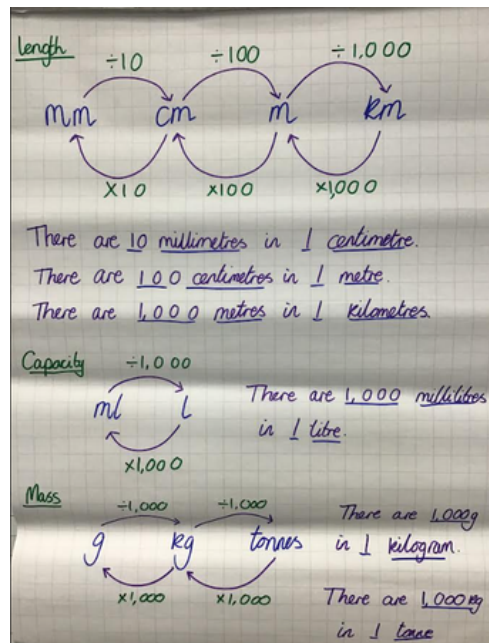 Length
÷10 ÷100 ÷1,000
mm cm m km
×10 ×100 ×1,000
There are 10 millimetres in 1 centimetre.
There are 100 centimetres in 1 metre.
There are 1,000 metres in 1 kilometres.
Capacity
÷1,000
ml l
×1,000
There are 1,000 millilitres
in 1 litre.
Mass
÷1,000 ÷1,000
g kg tonnes
×1,000 ×1,000
There are 1,000g
in 1 kilogram.
There are 1,000kg
in 1 tonne